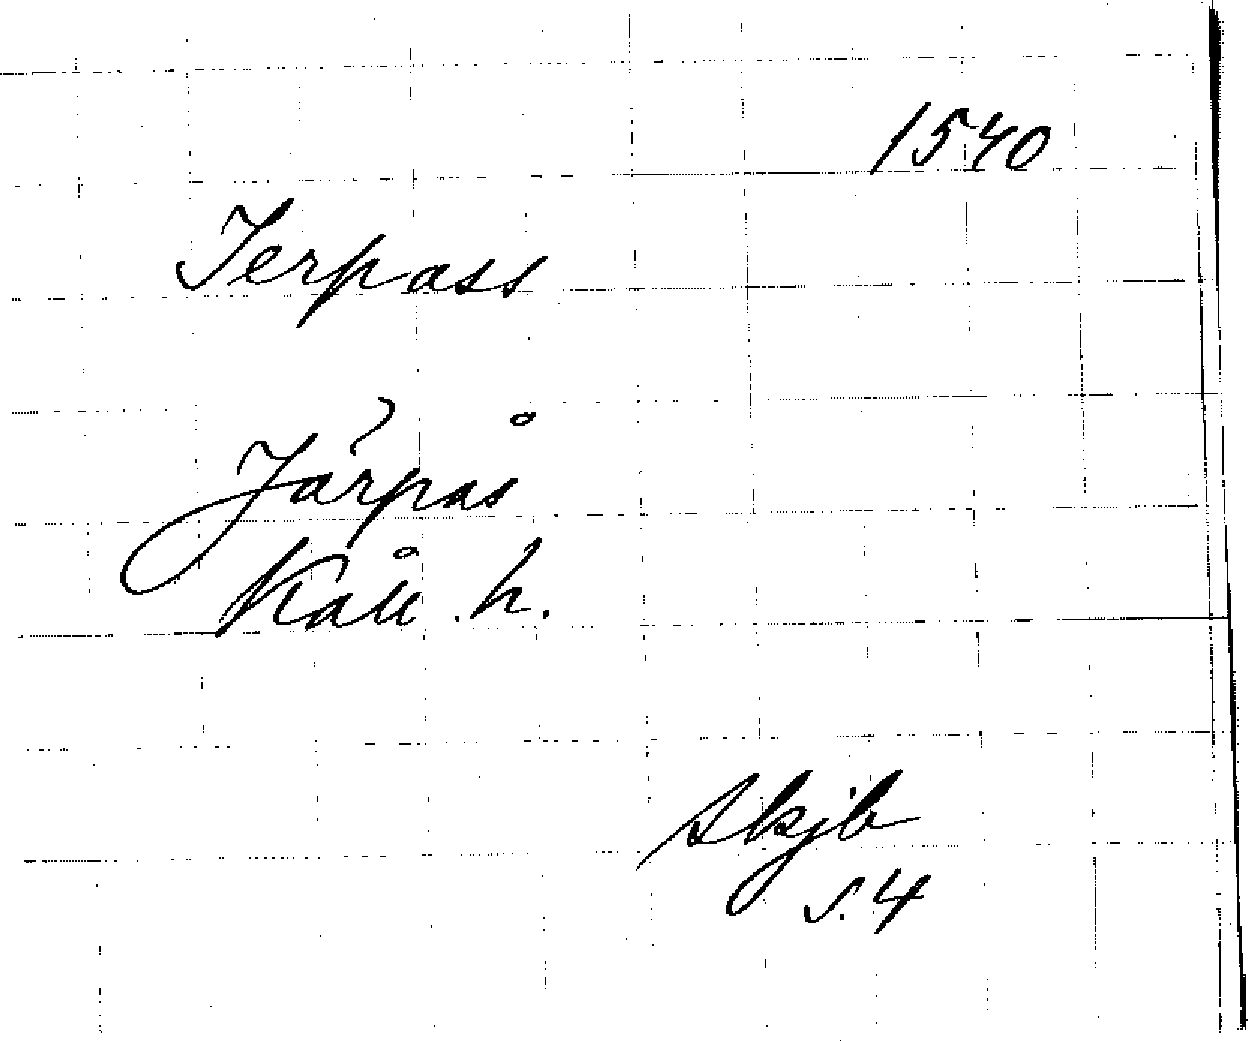 1540
Jerpass
Järpås
Kåll. h.
Skjb
s. 4